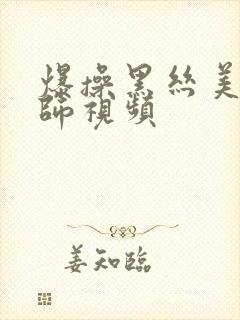 爆操黑絲美
師視頻
姜知臨